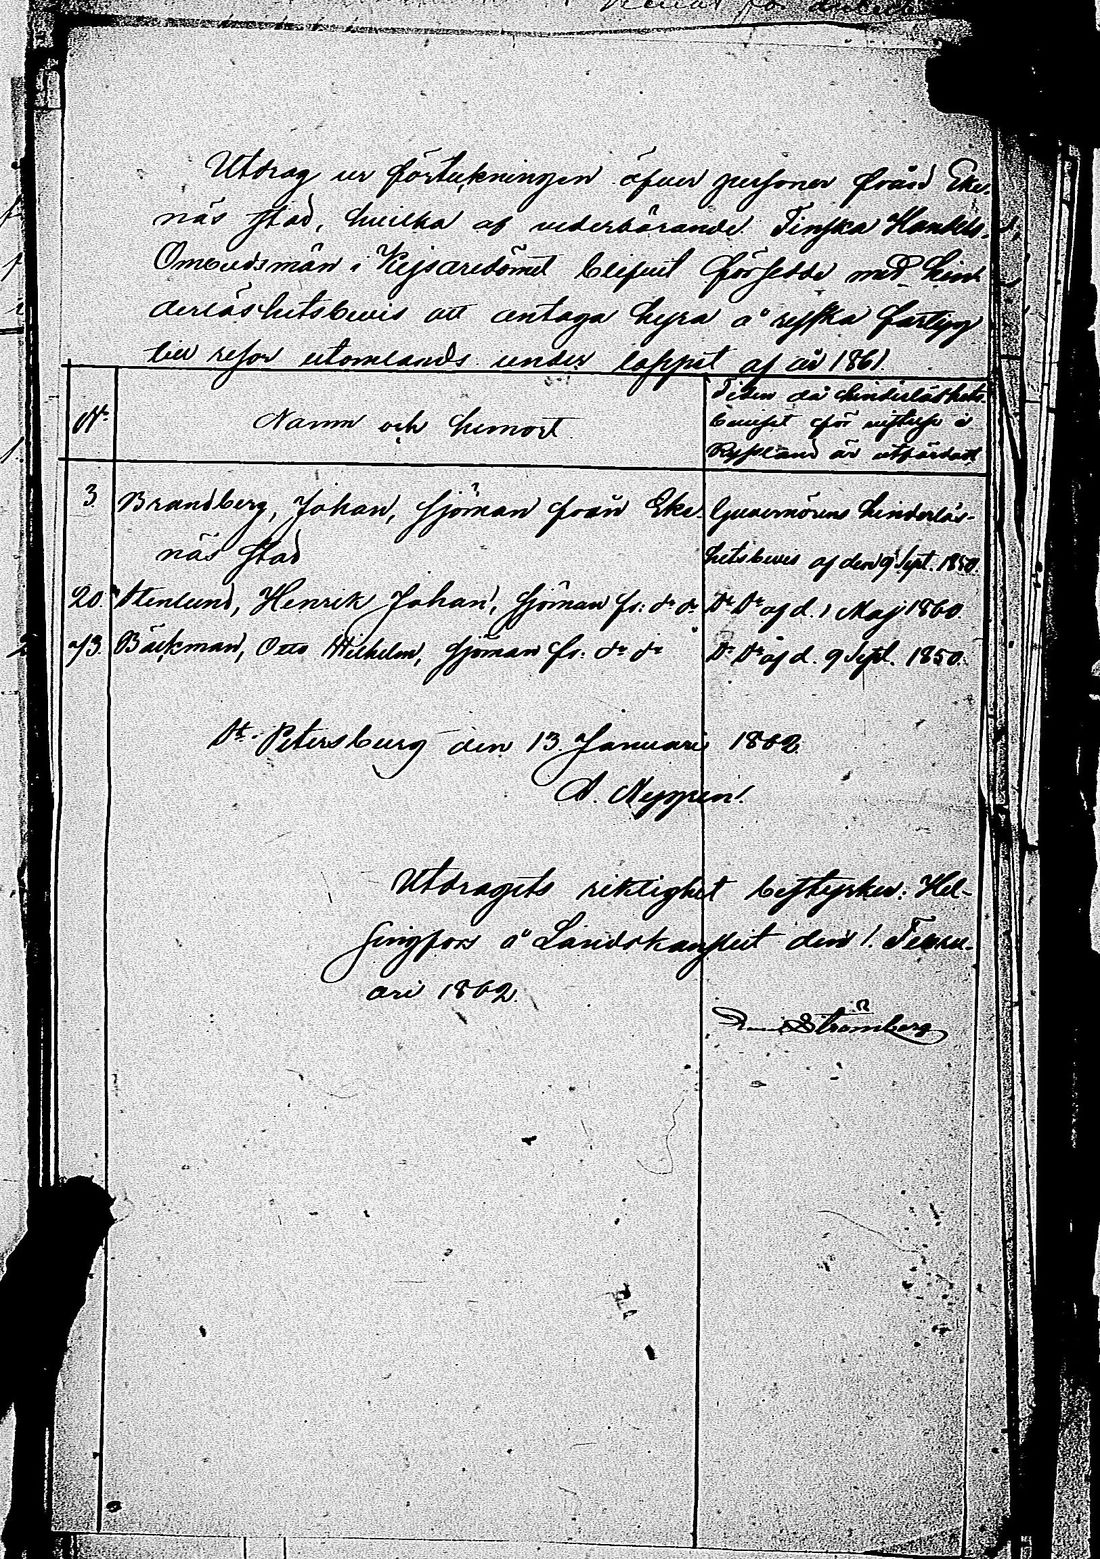 Utdrag ur förtekningen öfver personer från Eke-
näs stad, hvilka af vederbörande Finska Handels-
Ombudsmän i Kejsaredömet blifvit försedde med hin-
derlöshetsbevis att antaga hyra å ryska fartyg
till resor utomlands under loppet af år 1861.
No
Namn och hemort
Tiden då hinderlöshets-
beviset för vistelse i
Ryssland är utfärdadt
3 Brandberg, Johan, sjöman från Eke- Guvernörens hinderlös-
näs stad hetsbevis af den 9 Sept. 1850.
20 Stenlund, Henrik Johan, sjöman fr: do do Do Do af d. 1 Maj 1860.
73 Bäckman, Otto Wilhelm, sjöman fr: do do Do Do af d. 9 Sept. 1850.
St. Petersburg den 13 Januari 1862
Utdragets riktighet bestyrker: Hel-
singfors å Landskansliet den 1. Febru-
ari 1862
Strömberg